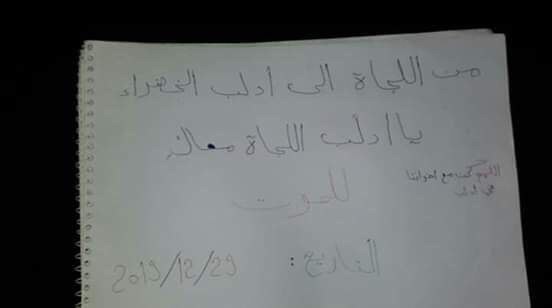 من اللجاة الى أدلب الخضراء
يا ادلب اللجاة معاك
للموت
اللهم كن مع اخواننا
في ادلب
التاريخ : 2019/12/29